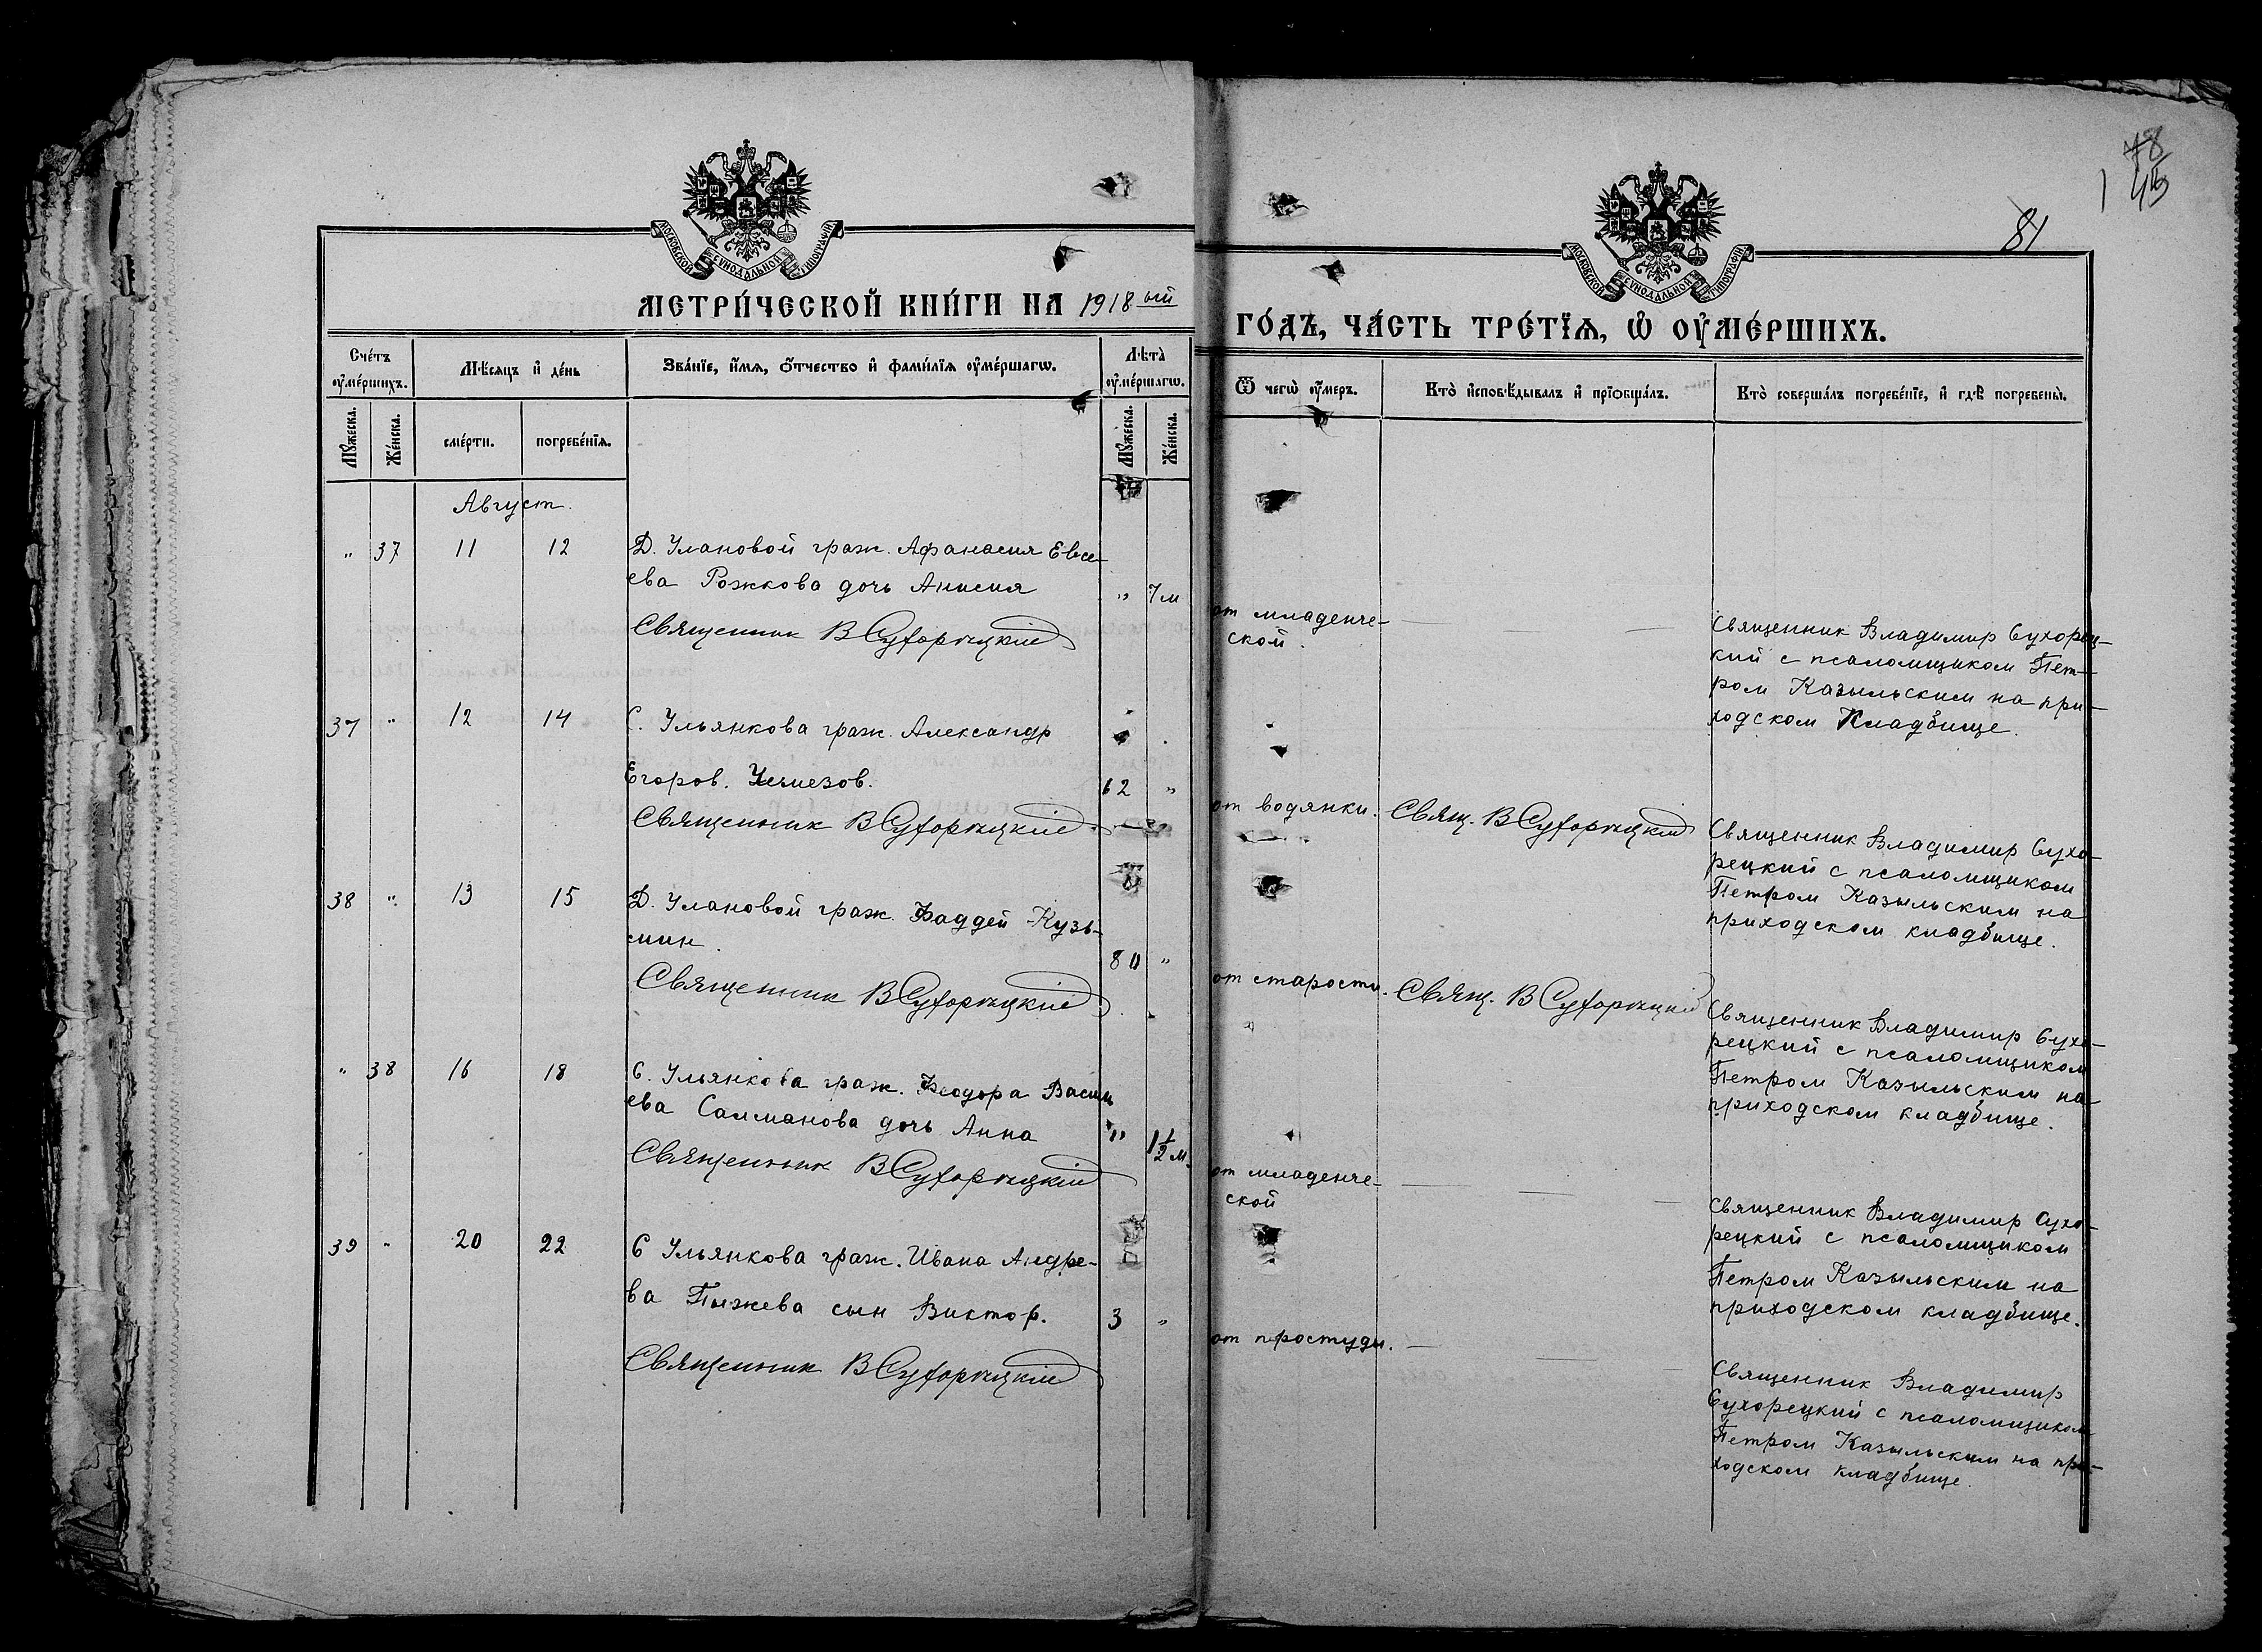 48
1 45
81
МОСКОВСКОЙ СѴНОДАЛЬНОЙ ТИПОГРАФІИ
МОСКОВСКОЙ СѴНОДАЛЬНОЙ ТИПОГРАФІИ
МЕТРИ́ЧЕСКОЙ КНИ́ГИ НА 1918 ый
ГО́ДЪ, ЧА́СТЬ ТРЕ́ТЇѦ, Ѡ҆ ОУ҆МЕ́РШИХЪ.
Сче́тъ оу҆ме́ршихъ.
Мѣ́сяцъ и҆ де́нь
Зва́нїе, и҆́мѧ, ѻ҆́тчество и҆ фами́лїѧ оу҆ме́ршагѡ.
Лѣта̀ оу҆ме́ршагѡ.
Ѿ чегѡ̀ оу҆́меръ.
Кто̀ и҆сповѣ́дывалъ и҆ прїѡбща́лъ.
Кто̀ соверша́лъ погребе́нїе, и҆ гдѣ̀ погребены̀.
Мꙋ́жеска.
Же́нска.
сме́рти.
погребе́нїѧ.
Мꙋ́жеска.
Же́нска.
Август.
" 37 11 12 Д. Улановой граж. Афанасия Евсе-
ева Рожкова дочь Анисия " 7 м
Священник В Сухорѣцкій
от младенче-
ской.
Священник Владимир Сухорец-
кий с псаломщиком Пет-
ром Казыльским на при-
ходском Кладбище.
37 " 12 14 С. Ульянкова граж. Александр
Егоров. 62 "
Священник В Сухорѣцкій
от водянки. Свящ. В Сухорѣцкій
Священник Владимир Сухо-
рецкий с псаломщиком
Петром Казыльским на
приходском кладбище.
38 " 13 15 Д. Улановой граж. Фаддей Кузь-
мин. 80 "
Священник В Сухорѣцкій
от старости. Свящ. В Сухорѣцкій
Священник Владимир Сухо-
рецкий с псаломщиком
Петром Казыльским на
приходском кладбище.
" 38 16 18 С. Ульянкова граж. Феодора Василь
ева Салманова дочь Анна " 1 1/2 м.
Священник В Сухорѣцкій
от младенче-
ской
Священник Владимир Сухо-
рецкий с псаломщиком
Петром Казыльским на
приходском кладбище.
39 " 20 22 С Ульянкова граж. Ивана Андре-
ва Пыжева сын Виктор. 3 "
Священник В Сухорѣцкій
от простуды.
Священник Владимир
Сухорецкий с псаломщиком
Петром Казыльским на при-
ходском кладбище.